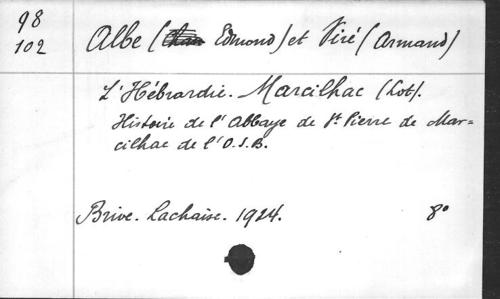 98
102
Albe (Edmond) et Viré (Armand)
L'Hébrardie. Marcilhac (Lot).
Histoire de l'Abbaye de St. Pierre de Mar=
cilhac de l'O.S.B.
Brive. Lachaise. 1924. 8°